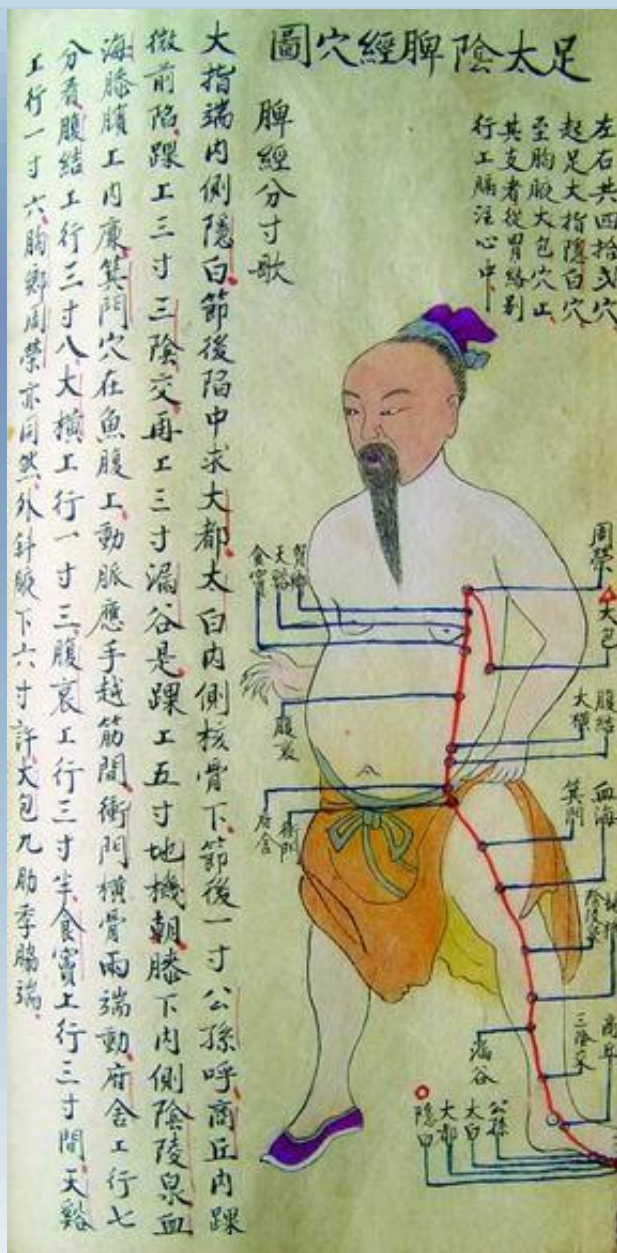 足太陰脾經穴圖
左右共四拾弍穴
起足大指隱白穴
至胸腋大包穴止
其支者從胃絡別
行上膈注心中
脾經分寸歌
大指端內側隱白節後陷中求大都太白內側核骨下節後一寸公孫呼商丘內踝
微前陷踝上三寸三陰交再上三寸漏谷是踝上五寸地機朝膝下內側陰陵泉血
海膝臏上內廉箕門穴在魚腹上動脈應手越筋間衝門橫骨兩端動府舍上行七
分看腹結上行三寸八大橫上行一寸三腹哀上行三寸半食竇上行三寸間天谿
上行一寸六胸鄉周榮亦同然外斜腋下六寸許大包九肋季脇端
周榮
大包
胸鄉
天谿
食竇
腹結
大橫
腹哀
血海
箕門
衝門
府舍
地機
陰陵泉
商丘
三陰交
漏谷
公孫
太白
大都
隱白